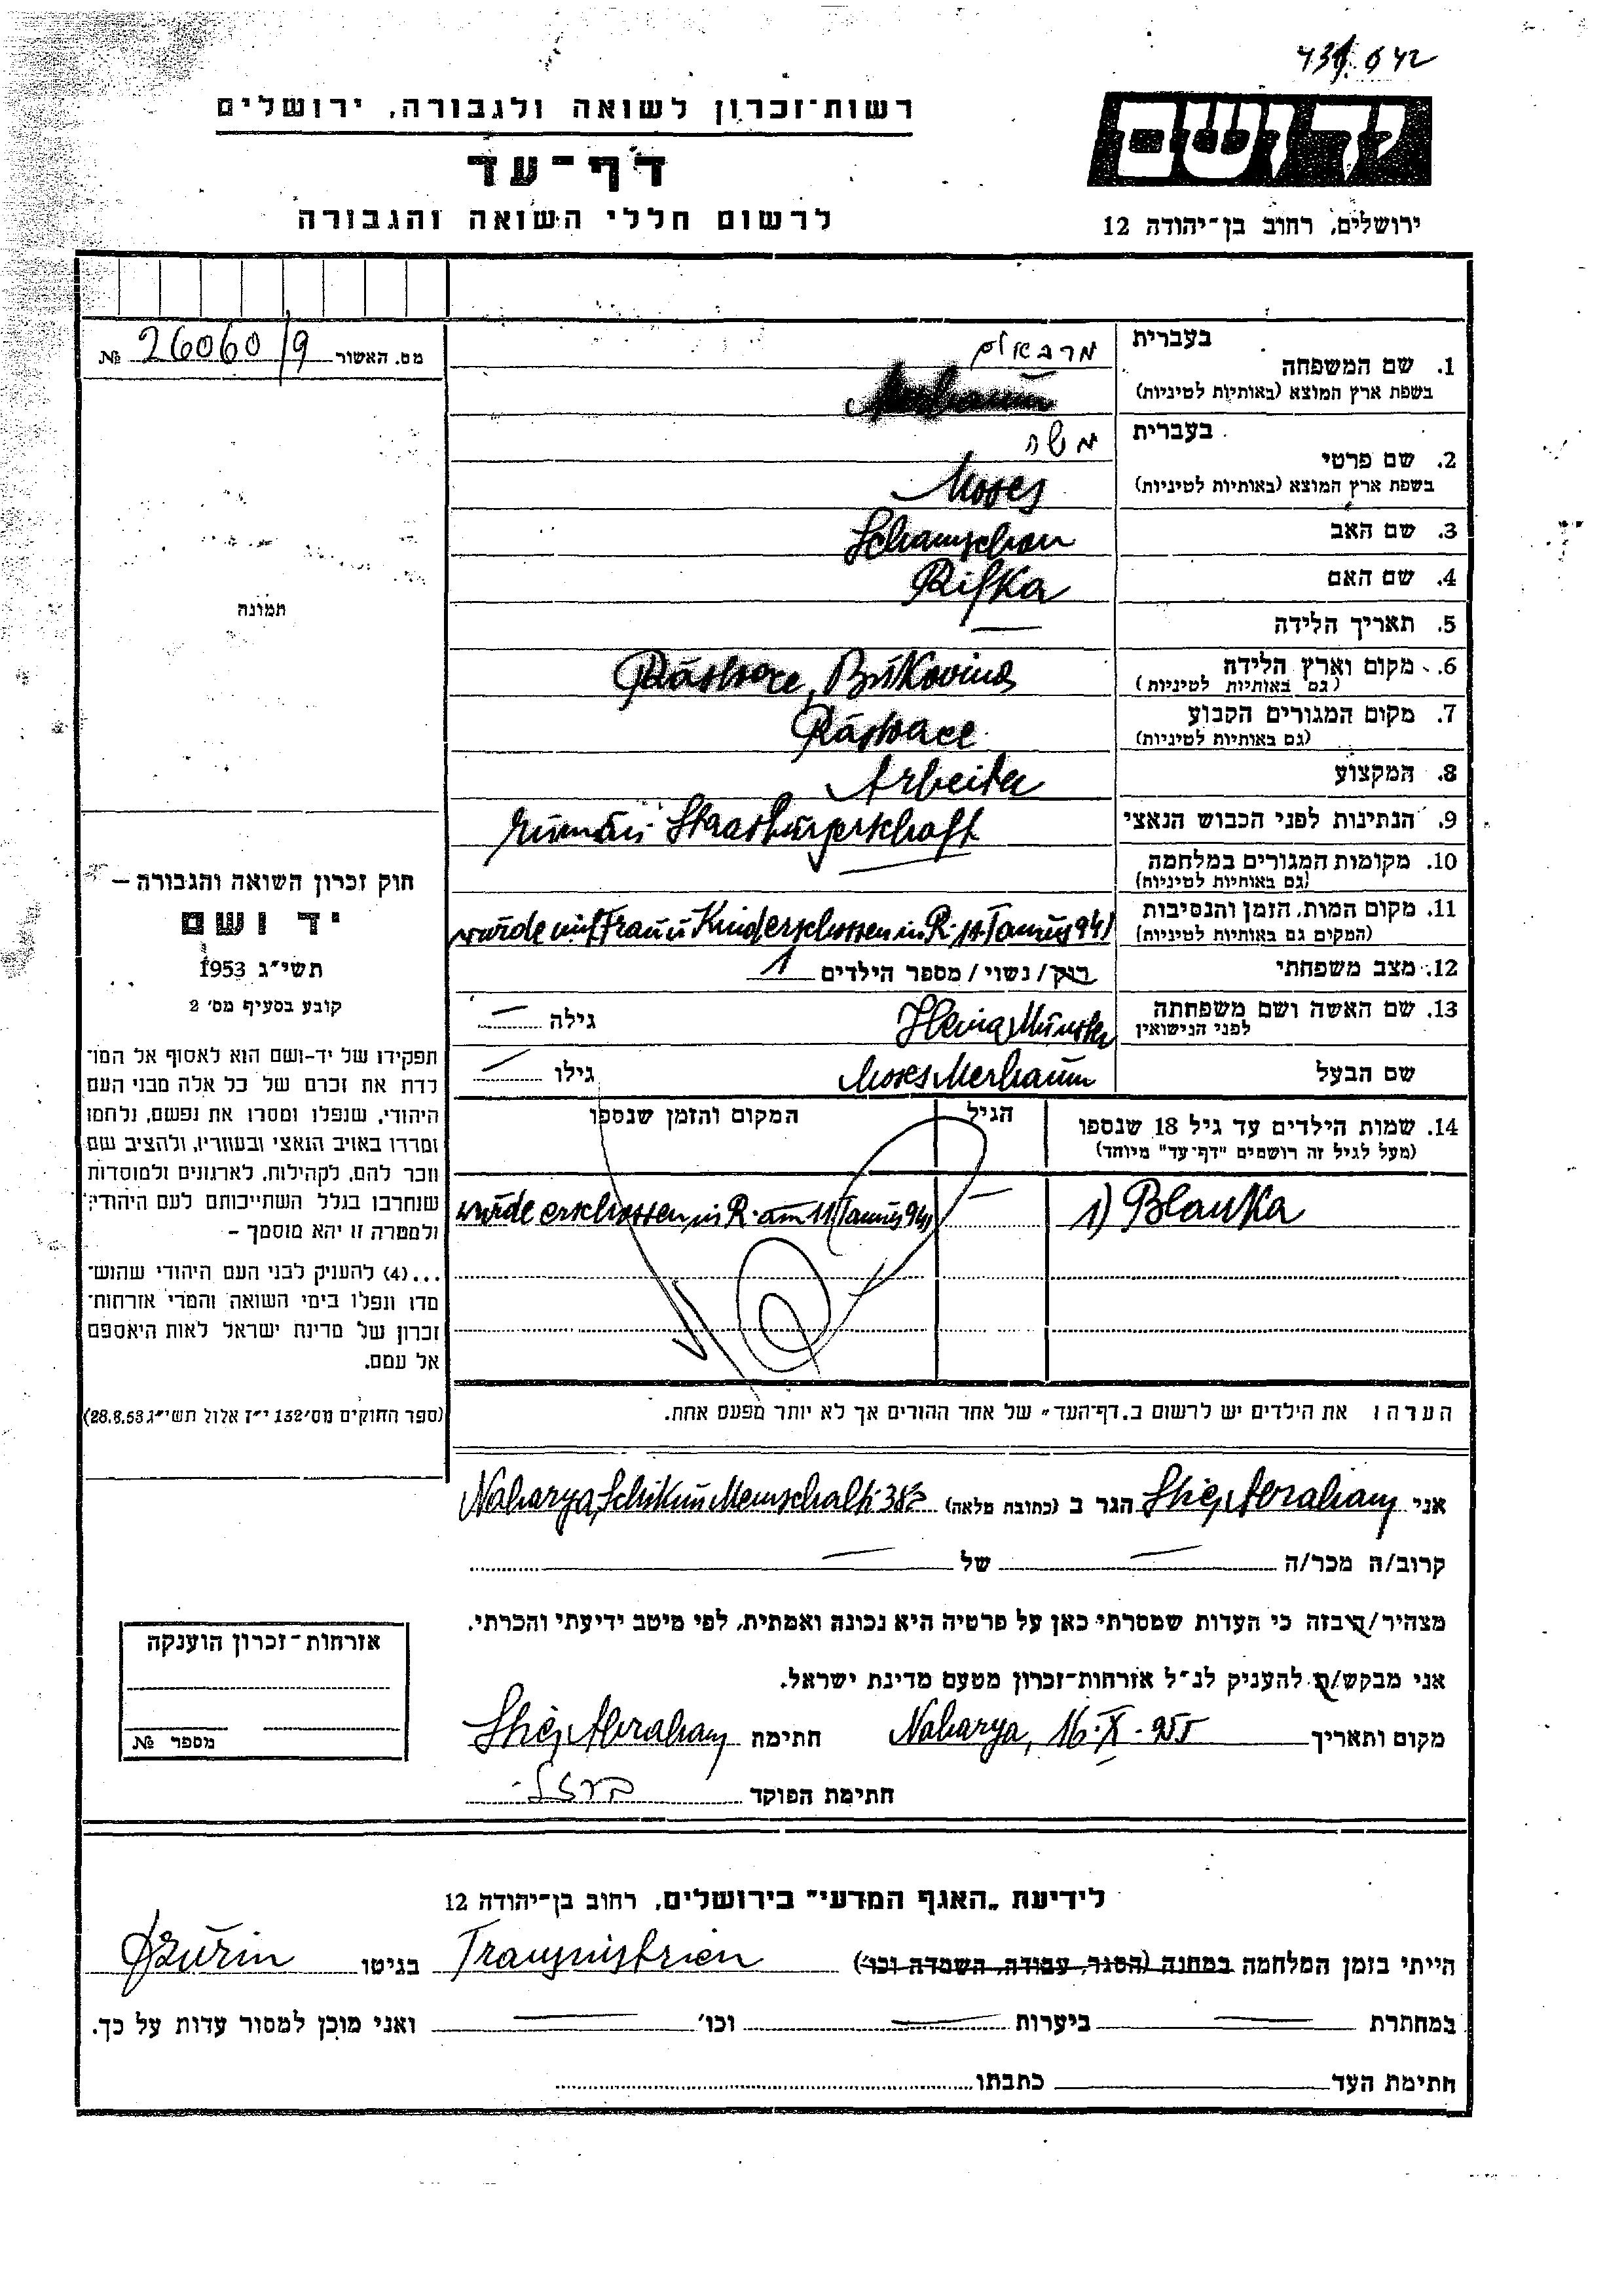 רשות־זכרון לשואה ולגבורה, ירושלים
דף־עד
לרשום חללי השואה והגבורה
ידושם
ירושלים, רחוב בן־יהודה 12
מס. האשור 26060/9 №
בעברית מרבאום
1. שם המשפחה
בשפת ארץ המוצא (באותיות לטיניות) Merbaum
בעברית משה
2. שם פרטי
בשפת ארץ המוצא (באותיות לטיניות) Moses
3. שם האב Schamschon
4. שם האם Rifka
5. תאריך הלידה —
6. מקום וארץ הלידה
(גם באותיות לטיניות) Bukovina
7. מקום המגורים הקבוע
(גם באותיות לטיניות)
8. המקצוע Arbeiter
9. הנתינות לפני הכבוש הנאצי rumän. Staatsbürgerschaft
10. מקומות המגורים במלחמה —
(גם באותיות לטיניות)
11. מקום המות, הזמן והנסיבות
(המקום גם באותיות לטיניות) wurde mit Frau u Kind erschossen in R. 941
12. מצב משפחתי רוק/נשוי/מספר הילדים 1
13. שם האשה ושם משפחתה
לפני הנישואין גילה —
שם הבעל Moses Merbaum גילו —
14. שמות הילדים עד גיל 18 שנספו
(מעל לגיל זה רושמים "דף־עד" מיוחד)
הגיל
המקום והזמן שנספו
1) Blanka — wurde erschossen in R. am 11. 941
הערה: את הילדים יש לרשום ב„דף־העד" של אחד ההורים אך לא יותר מפעם אחת.
תמונה
חוק זכרון השואה והגבורה –
יד ושם
תשי״ג 1953
קובע בסעיף מס׳ 2
תפקידו של יד-ושם הוא לאסוף אל המו־
לדת את זכרם של כל אלה מבני העם
היהודי, שנפלו ומסרו את נפשם, נלחמו
ומרדו באויב הנאצי ובעוזריו, ולהציב שם
וזכר להם, לקהילות, לארגונים ולמוסדות
שנחרבו בגלל השתייכותם לעם היהודי;
ולמטרה זו יהא מוסמך –
...(4) להעניק לבני העם היהודי שהוש־
מדו ונפלו בימי השואה והמרי אזרחות־
זכרון של מדינת ישראל לאות היאספם
אל עמם.
(ספר החוקים מס׳ 132 י״ז אלול תשי״ג 28.8.53)
אני Abraham הגר ב (כתובת מלאה) Naharya, Schikun
קרוב/ה מכר/ה — של —
מצהיר/ה בזה כי העדות שמסרתי כאן על פרטיה היא נכונה ואמתית, לפי מיטב ידיעתי והכרתי.
אני מבקש/ת להעניק לנ״ל אזרחות־זכרון מטעם מדינת ישראל.
מקום ותאריך Naharya, 16.X.955 חתימה Abraham
חתימת הפוקד
אזרחות־זכרון הוענקה
מספר №
לידיעת „האגף המדעי" בירושלים, רחוב בן־יהודה 12
הייתי בזמן המלחמה במחנה (הסגר, עבודה, השמדה וכו׳) Transnistrien בגיטו Dzurin
במחתרת — ביערות — וכו׳ — ואני מוכן למסור עדות על כך.
חתימת העד כתבתו